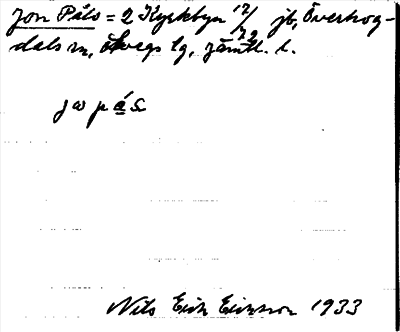 Jon Påls = 2 Kyrkbyn 12/72 jb, Överhog-
dals sn, Ovregs lg, Jämtl. l.
jωpás
Nils Erik Eriksson 1933